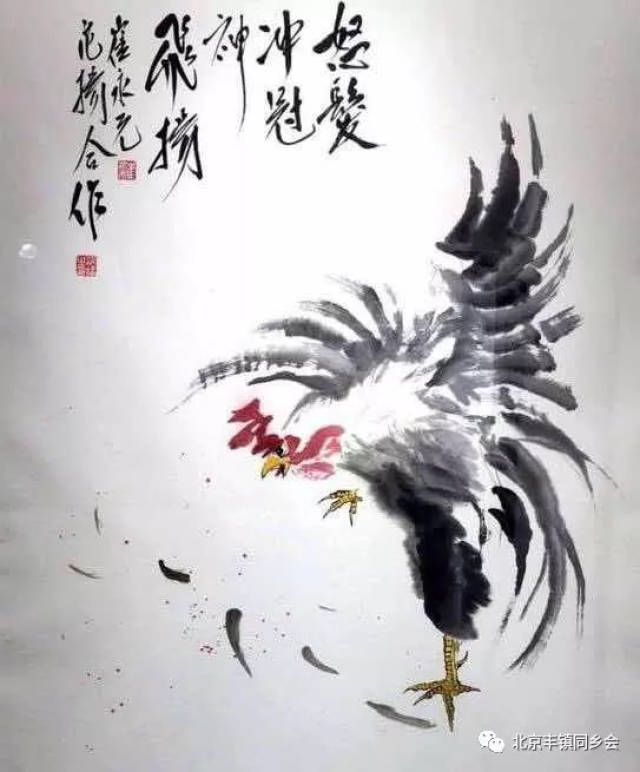 怒髮
冲冠
神
飛揚
崔永元
范揚合作
北京丰镇同乡会